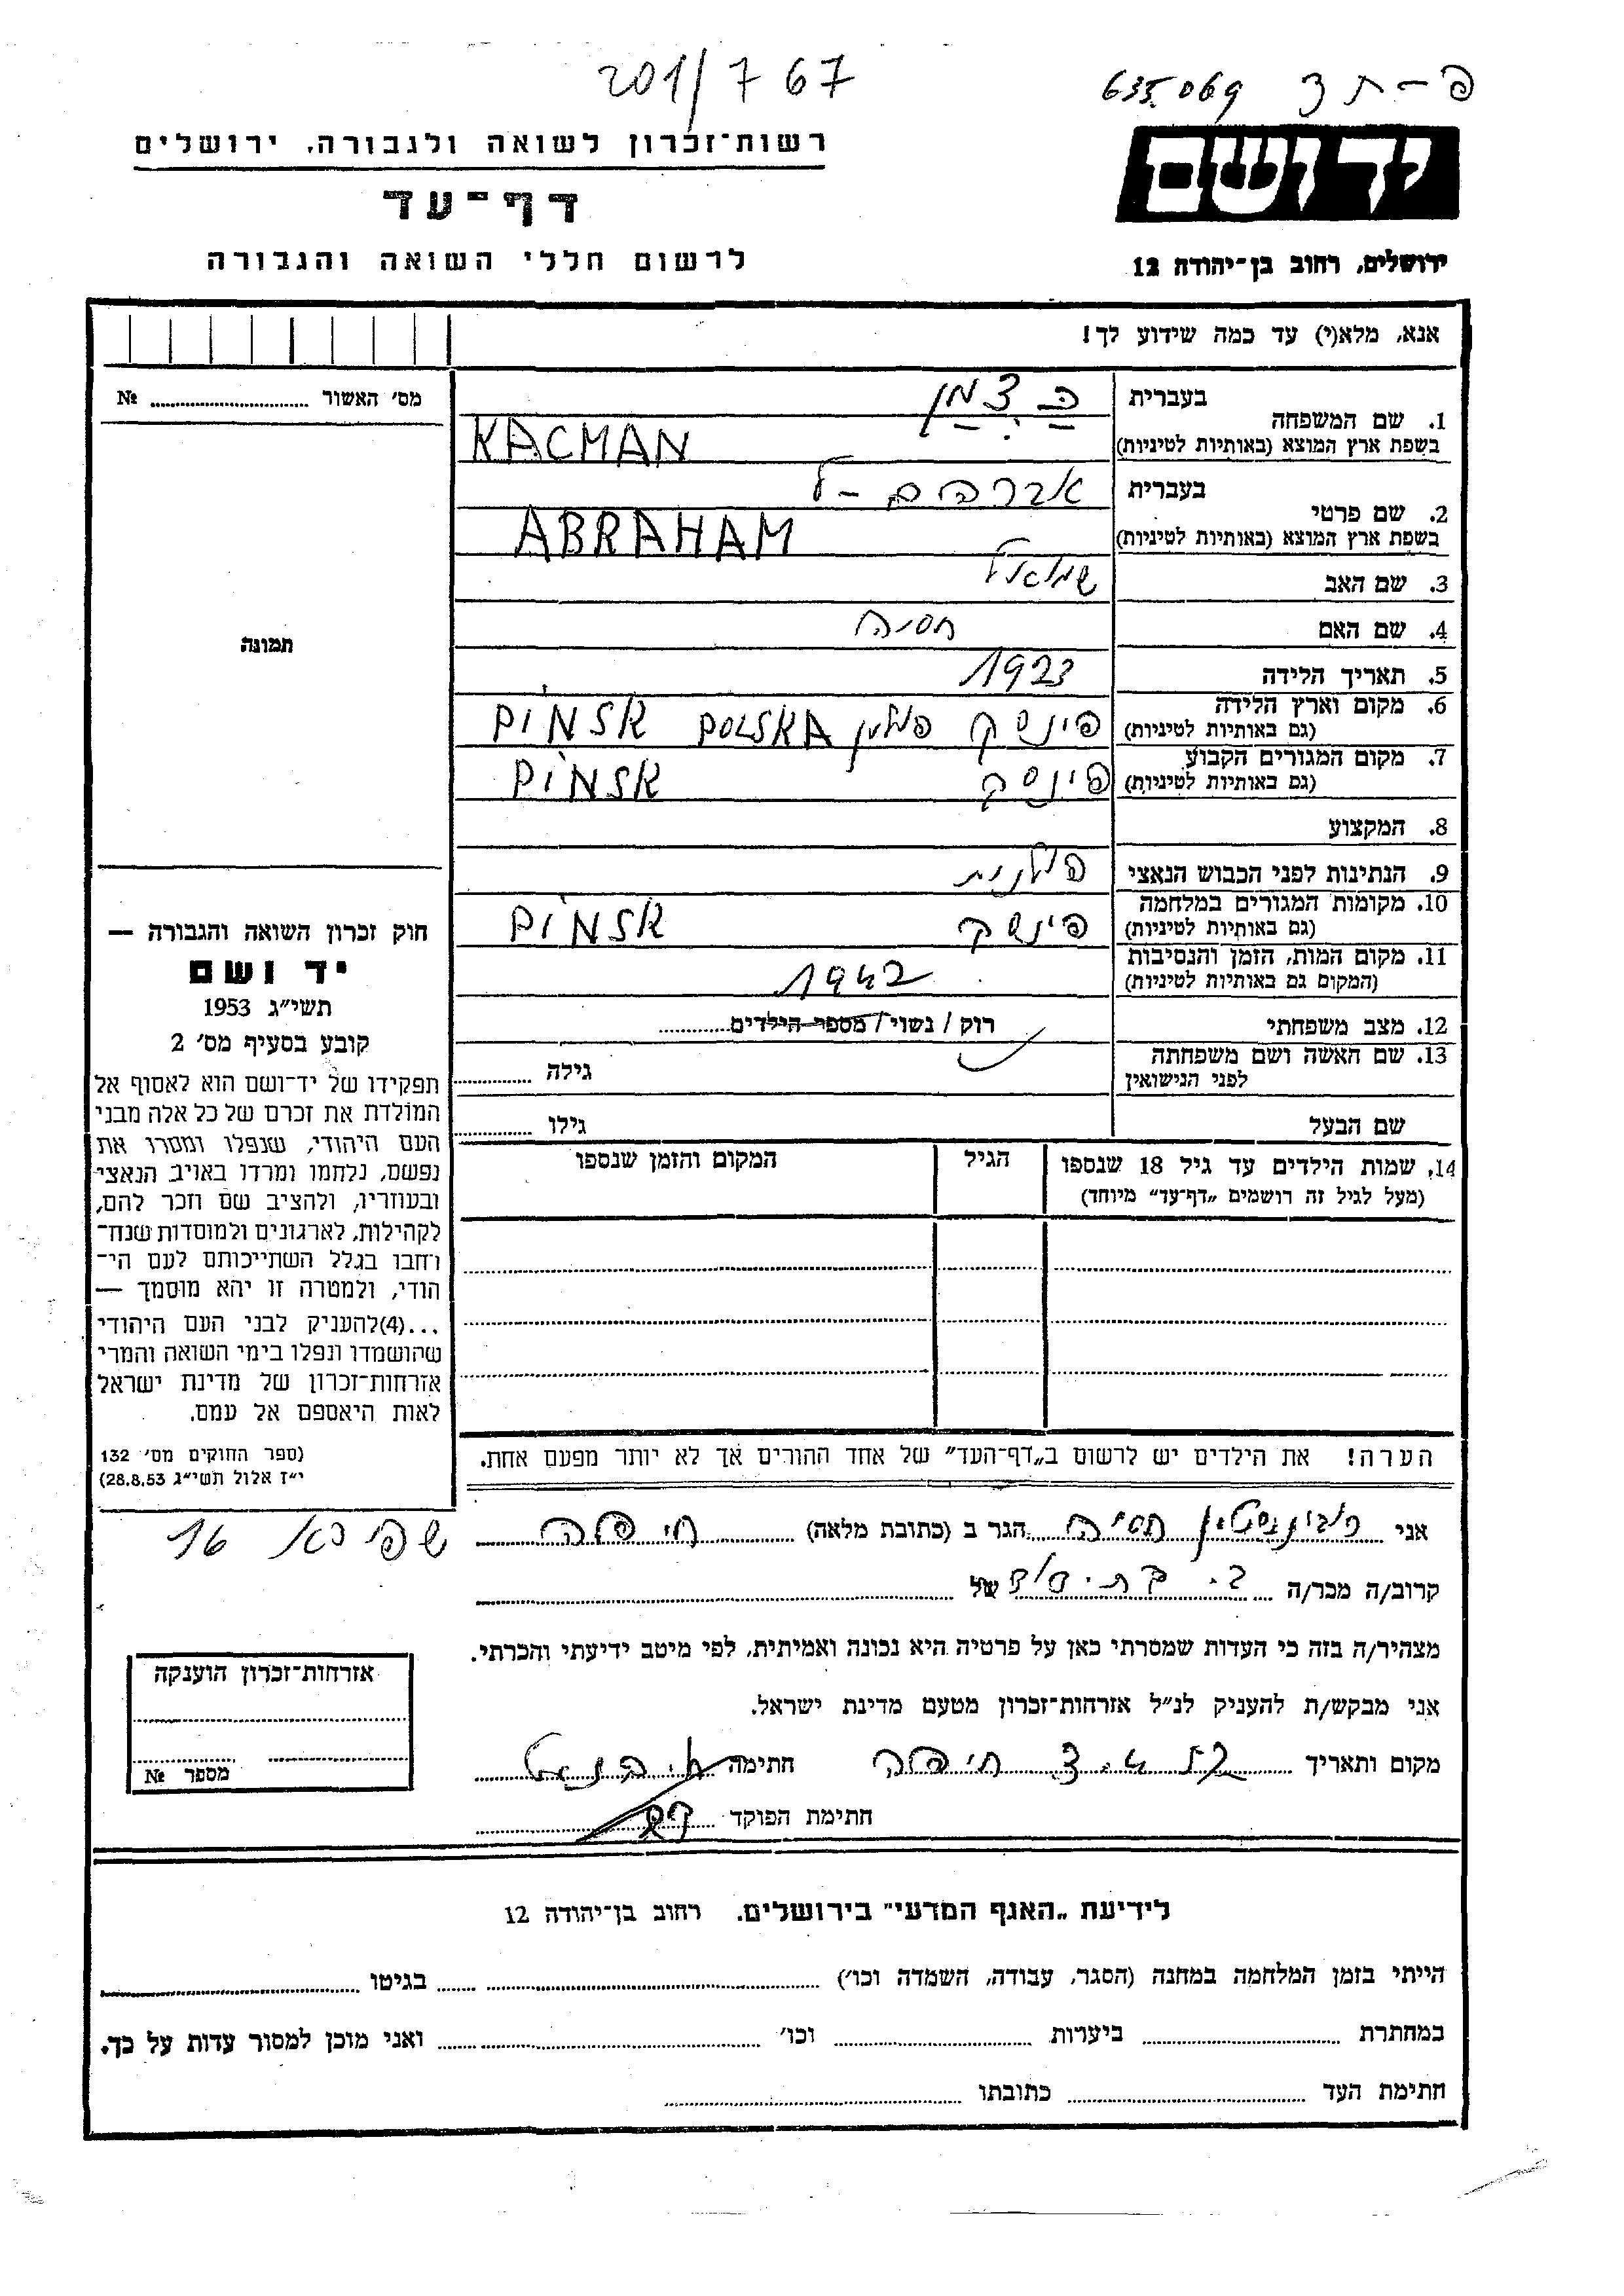 201/767
635069
רשות־זכרון לשואה ולגבורה, ירושלים
יד ושם
דף־עד
לרשום חללי השואה והגבורה
ירושלים, רחוב בן־יהודה 12
אנא, מלא(י) עד כמה שידוע לך!
מס׳ האשור № ..........
1. שם המשפחה
בעברית כצמן
בשפת ארץ המוצא (באותיות לטיניות) KACMAN
2. שם פרטי
בעברית אברהם
בשפת ארץ המוצא (באותיות לטיניות) ABRAHAM
3. שם האב שמואל
4. שם האם חסיה
5. תאריך הלידה 1923
6. מקום וארץ הלידה
(גם באותיות לטיניות) פינסק פולין POLSKA PINSK
7. מקום המגורים הקבוע
(גם באותיות לטיניות) פינסק PINSK
8. המקצוע
9. הנתינות לפני הכבוש הנאצי פולנית
10. מקומות המגורים במלחמה
(גם באותיות לטיניות) פינסק PINSK
11. מקום המות, הזמן והנסיבות
(המקום גם באותיות לטיניות) 1942
12. מצב משפחתי רוק / נשוי / מספר הילדים..........
13. שם האשה ושם משפחתה
לפני הנישואין גילה ..........
שם הבעל גילו ..........
14. שמות הילדים עד גיל 18 שנספו
(מעל לגיל זה רושמים „דף־עד״ מיוחד)
הגיל
המקום והזמן שנספו
הערה! את הילדים יש לרשום ב„דף־העד״ של אחד ההורים אך לא יותר מפעם אחת.
תמונה
חוק זכרון השואה והגבורה —
יד ושם
תשי״ג 1953
קובע בסעיף מס׳ 2
תפקידו של יד־ושם הוא לאסוף אל
המולדת את זכרם של כל אלה מבני
העם היהודי, שנפלו ומסרו את
נפשם, נלחמו ומרדו באויב הנאצי
ובעוזריו, ולהציב שם וזכר להם,
לקהילות, לארגונים ולמוסדות שנח־
רחבו בגלל השתייכותם לעם הי־
הודי, ולמטרה זו יהא מוסמך —
...(4)להעניק לבני העם היהודי
שהושמדו ונפלו בימי השואה והמרי
אזרחות־זכרון של מדינת ישראל
לאות היאספם אל עמם.
(ספר החוקים מס׳ 132
י״ז אלול תשי״ג 28.8.53)
אני רובינשטיין חסיה הגר ב (כתובת מלאה) חיפה
שפירא 16
קרוב/ה מכר/ה .......... של ..........
מצהיר/ה בזה כי העדות שמסרתי כאן על פרטיה היא נכונה ואמיתית, לפי מיטב ידיעתי והכרתי.
אני מבקש/ת להעניק לנ״ל אזרחות־זכרון מטעם מדינת ישראל.
מקום ותאריך חיפה חתימה
חתימת הפוקד
אזרחות־זכרון הוענקה
מספר №
לידיעת „האגף המדעי״ בירושלים. רחוב בן־יהודה 12
הייתי בזמן המלחמה במחנה (הסגר, עבודה, השמדה וכו׳) .......... בגיטו ..........
במחתרת .......... ביערות .......... וכו׳ .......... ואני מוכן למסור עדות על כך.
חתימת העד .......... כתובתו ..........